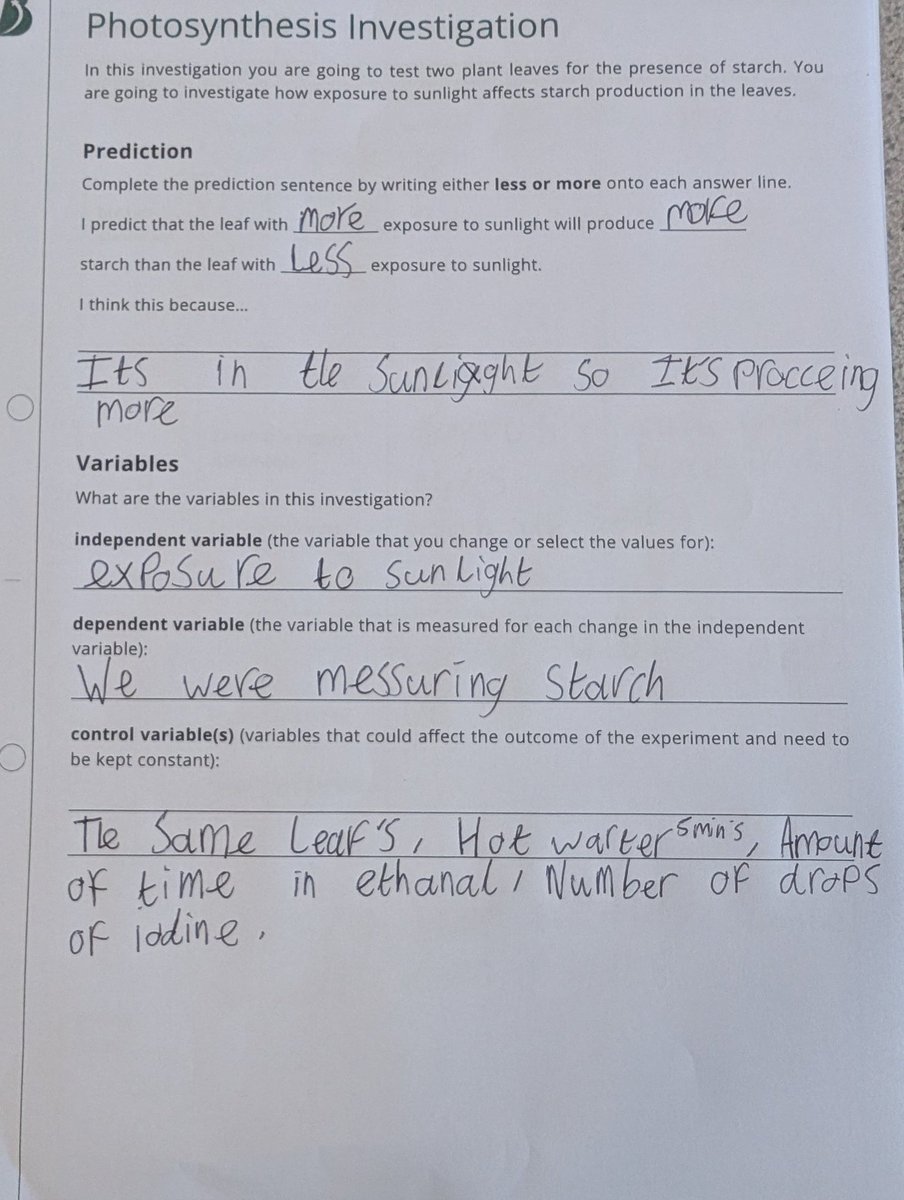 Photosynthesis Investigation
In this investigation you are going to test two plant leaves for the presence of starch. You
are going to investigate how exposure to sunlight affects starch production in the leaves.
Prediction
Complete the prediction sentence by writing either less or more onto each answer line.
I predict that the leaf with more exposure to sunlight will produce more
starch than the leaf with Less exposure to sunlight.
I think this because...
Its in tle Sunlight so It's procceing
more
Variables
What are the variables in this investigation?
independent variable (the variable that you change or select the values for):
exposure to sunlight
dependent variable (the variable that is measured for each change in the independent
variable):
We were messuring Starch
control variable(s) (variables that could affect the outcome of the experiment and need to
be kept constant):
Tle Same Leaf's, Hot warter 5min's, Amount
of time in ethanal, Number of drops
of iodine.